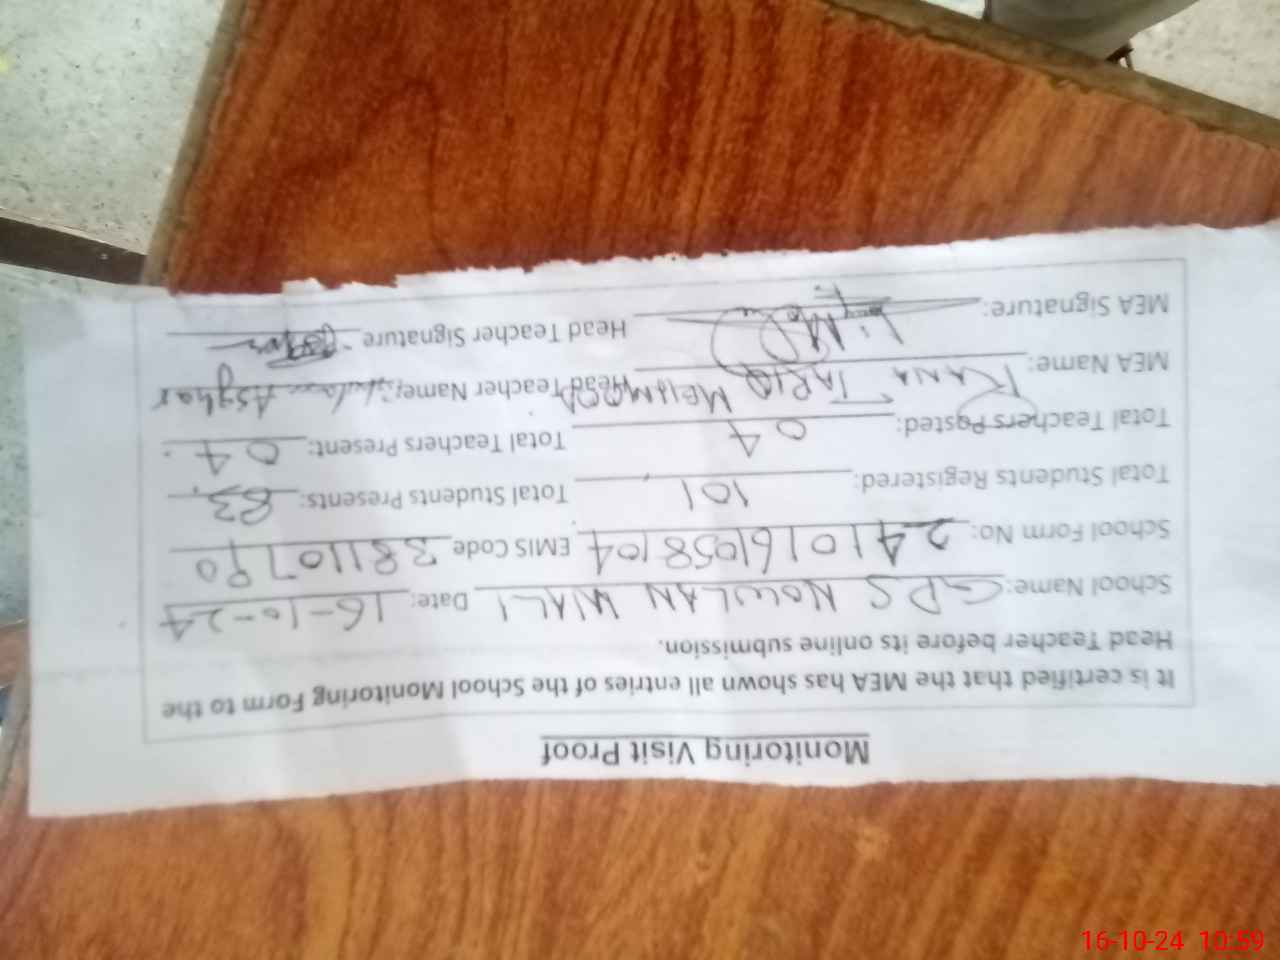 Monitoring Visit Proof
It is certified that the MEA has shown all entries of the School Monitoring Form to the
Head Teacher before its online submission.
School Name: GPS NOULAN WALI Date: 16-10-24
School Form No: 241016058104 EMIS Code 38110790
Total Students Registered: 101 Total Students Presents: 83
Total Teachers Posted: 04 Total Teachers Present: 04
MEA Name: RANA TARIQ MEHMOOD Head Teacher Name: Ghulam Asghar
MEA Signature: Head Teacher Signature
16-10-24 10:59